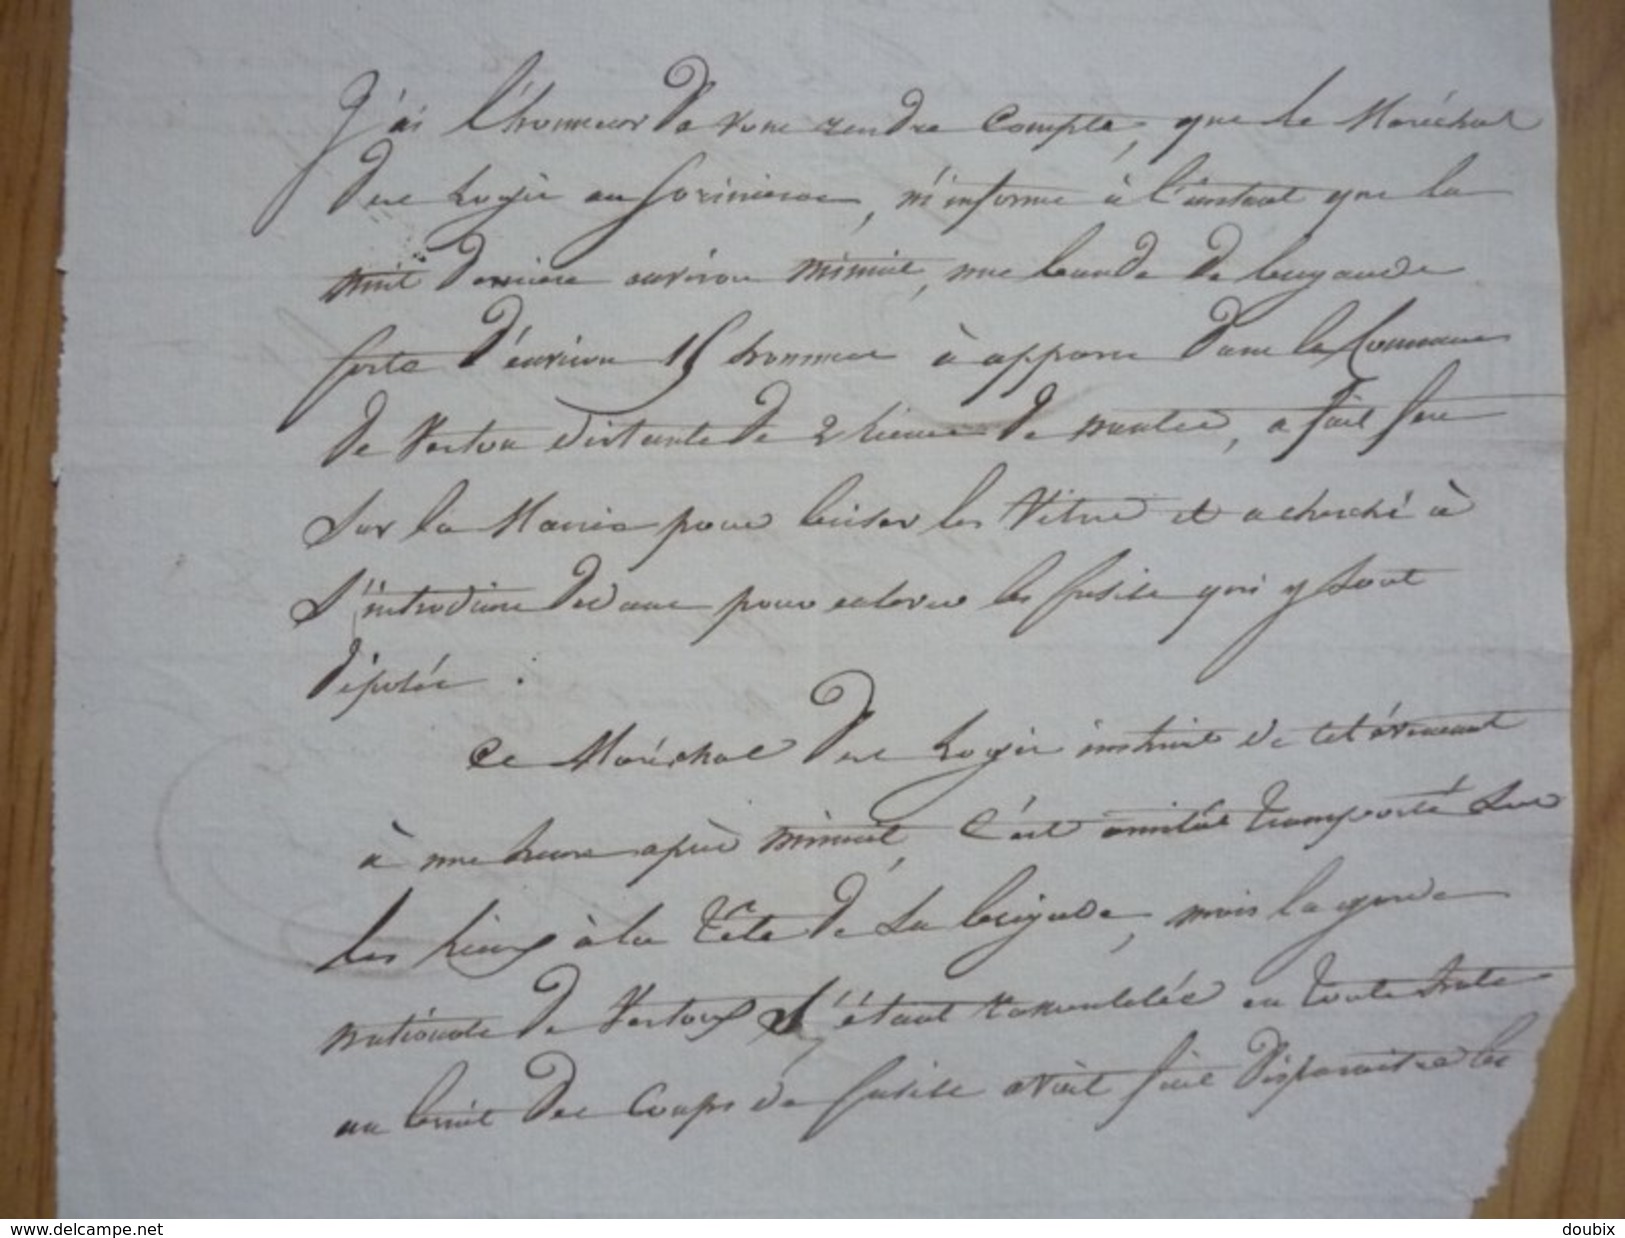 J'ai l'honneur de vous rendre Compte, que le Maréchal
des Logis au Sorinieres, m'informe à l'instant que la
nuit derniere environ minuit, une bande de brigands
forte d'environ 15 hommes à apparu dans la Commune
de Vertou distante de 2 lieues de nantes, a fait feu
sur la Mairie pour briser les Vitres et a cherché à
s'introduire dedans pour enlever les fusils qui y sont
déposés.
Ce Maréchal des Logis instruit de cet évenement
à une heure après minuit, c'est aussitôt transporté sur
les lieux à la tête de sa brigade, mais la garde
nationale de Vertoux s'étant rassemblée en toute hate
au bruit des coups de fusils avait fait disparaitre les
www.delcampe.net
doubix